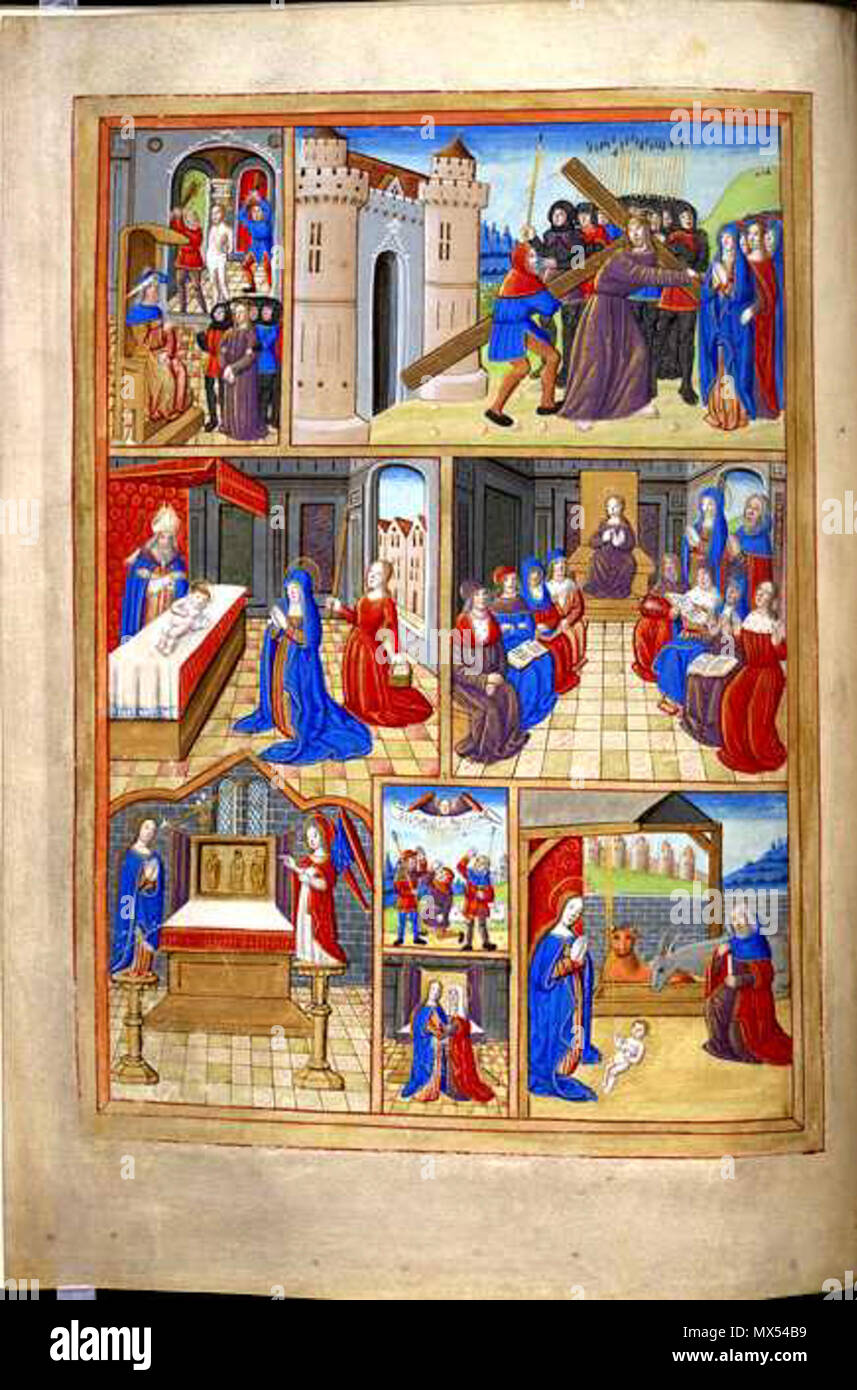 alamy
Image ID: MX54B9
www.alamy.com